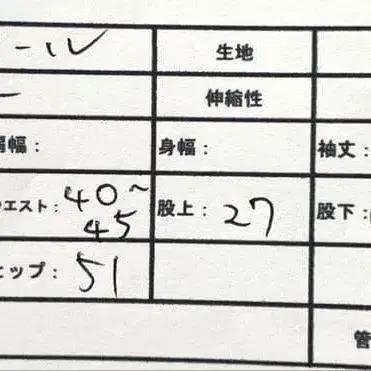 ール 生地
ー 伸縮性
肩幅： 身幅： 袖丈：
ウエスト： 40~45 股上： 27 股下：
ヒップ： 51
管